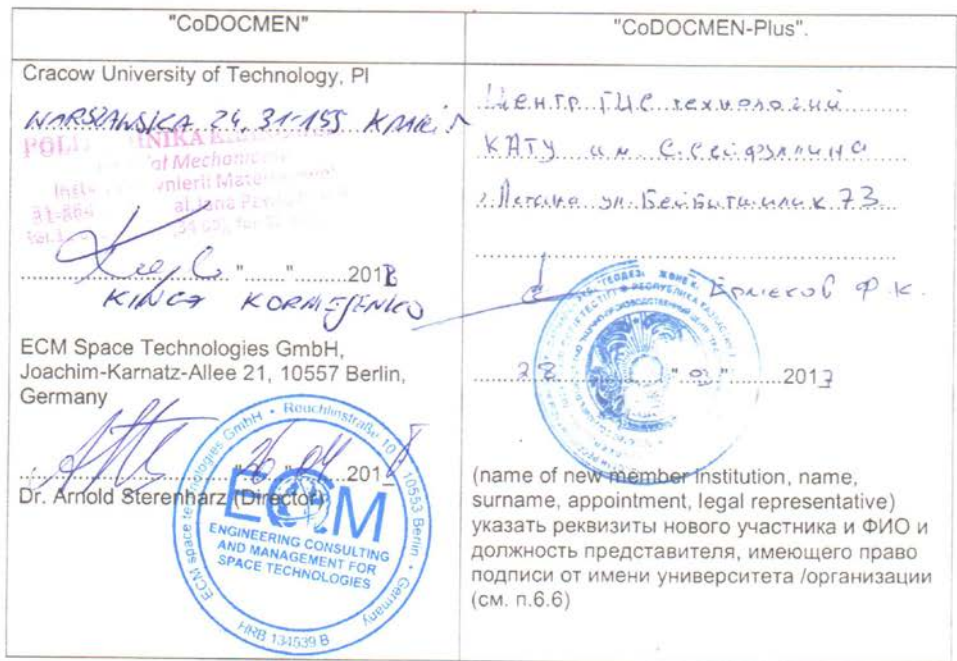 "CoDOCMEN"
Cracow University of Technology, Pl
WARSZAWSKA 24, 31-155
KINGA KORNIEJENKO
"......".........201
ECM Space Technologies GmbH,
Joachim-Karnatz-Allee 21, 10557 Berlin,
Germany
"26" 04 2018
Dr. Arnold Sterenharz (Director)
ECM space technologies GmbH • Reuchlinstraße 10 • 10553 Berlin • Germany
ECM
ENGINEERING CONSULTING
AND MANAGEMENT FOR
SPACE TECHNOLOGIES
HRB 134539 B
"CoDOCMEN-Plus".
Центр ГИС технологий
КАТУ им. С. Сейфуллина
г. Астана ул. Бейбитшилик 73
Ф.К.
28 "03" 2017
(name of new member institution, name,
surname, appointment, legal representative)
указать реквизиты нового участника и ФИО и
должность представителя, имеющего право
подписи от имени университета /организации
(см. п.6.6)